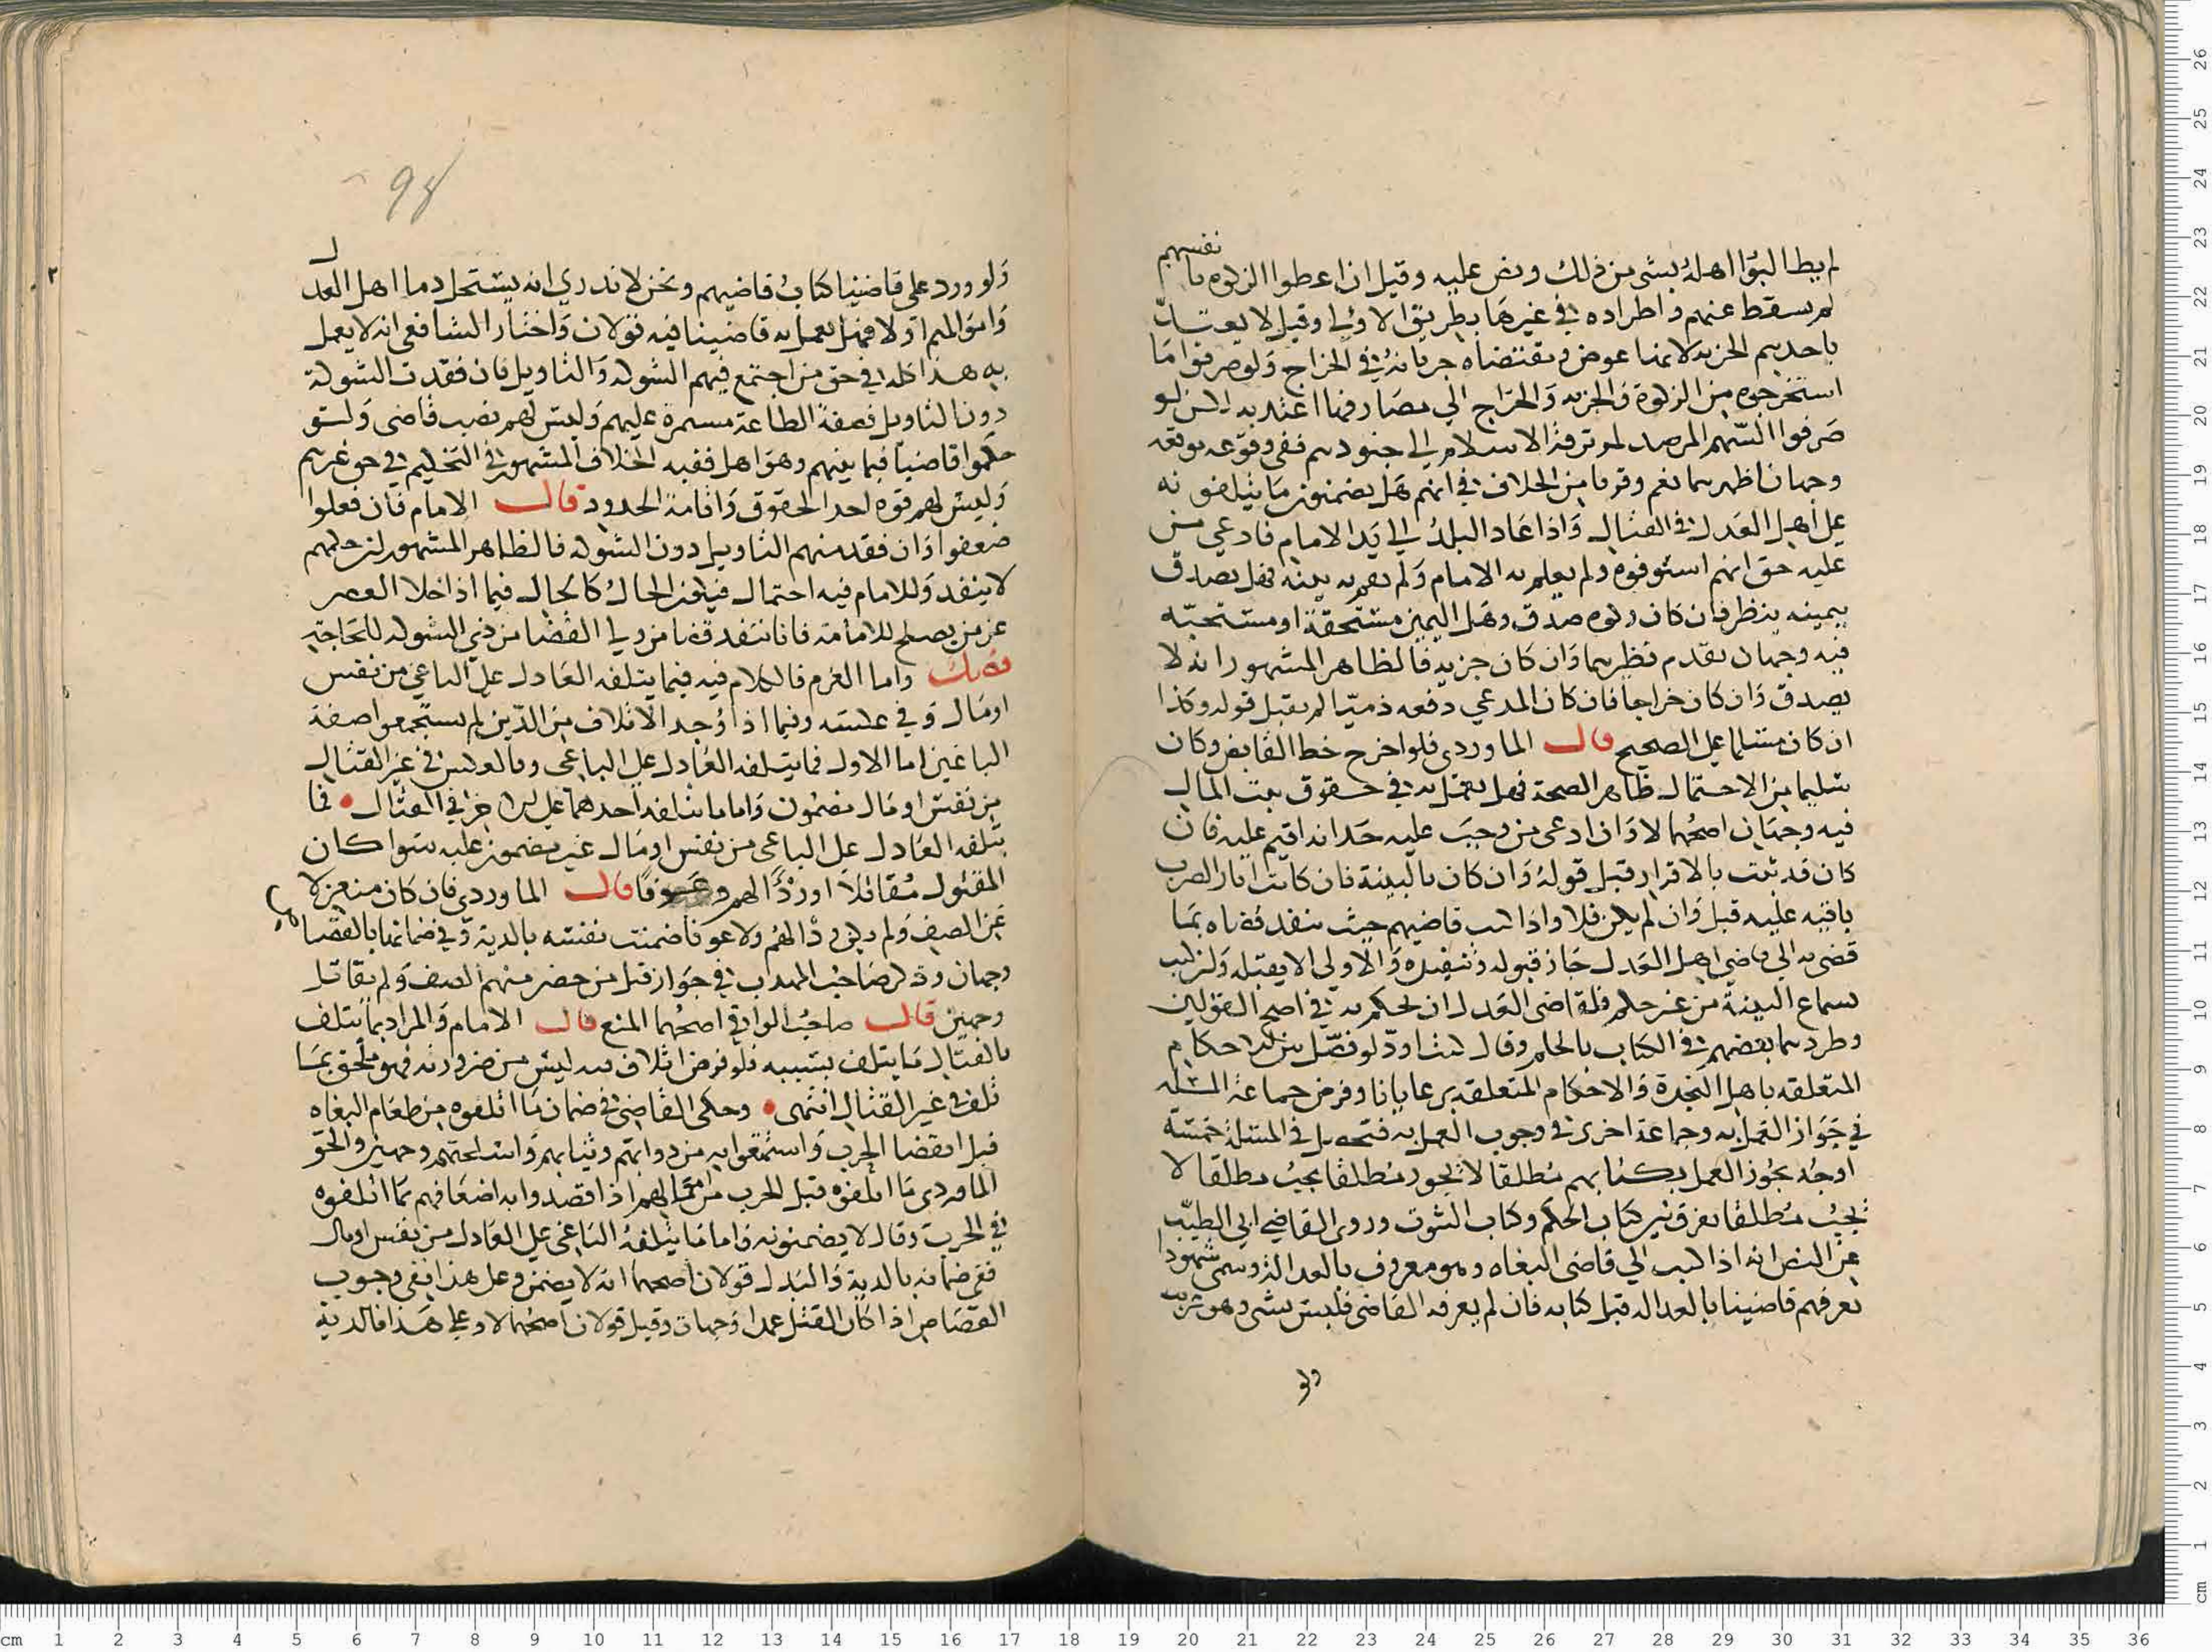 نفسهم
لم يطالبوا اهله بشى من ذلك ونص عليه وقيل ان اعطوا الزكوه با
لم يسقط عنهم واطراده في غيرها بطريق الاولي وقيل لا يعتد
باخذهم الجزيه لانها عوض ومقتضاه جريانه في الخراج ولو صرفوا ما
استخرجوه من الزكوة والجزيه والخراج الي مصارفها اعتد به لكن لو
صرفوا السهم المرصد لمرتزقة الاسلام الي جنودهم ففي وقوعه موقعه
وجهان اظهرهما نعم وقربا من الخلاف في انهم هل يضمنون ما يتلفونه
على اهل العدل في القتال واذا عاد البلد الي يد الامام فادعي من
عليه حق انهم استوفوه ولم يعلم به الامام ولم تقم به بينه فهل يصدق
بيمينه ينظر فان كان زكوه صدق وهل اليمين مستحقة او مستحبه
فيه وجهان تقدم نظيرهما وان كان جزيه فالظاهر المشهور انه لا
يصدق وان كان خراجا فان كان المدعي دفعه ذميا لم يقبل قوله وكذا
ان كان مسلما على الصحيح قال الماوردى فلو اخرج خط القابض وكان
سليما من الاحتمال ظاهر الصحة فهل يعمل به في حقوق بيت المال
فيه وجهان اصحهما لا وان ادعى من وجب عليه حد انه اقيم عليه فان
كان قد ثبت بالاقرار قبل قوله وان كان بالبينة فان كانت اثار الضرب
باقيه عليه قبل وان لم يكن فلا واذا كتب قاضيهم حيث ينفد قضاه بما
قضى به الي قاضي اهل العدل جاز قبوله وتنفيذه والاولى الا يقبله ولو كتب
بسماع البينة من غير حكم فلقاضى العدل ان يحكم به في اصح القولين
وطردهما بعضهم في الكتاب بالحكم وقال لو فصل بين الاحكام
المتعلقه باهل النجدة والاحكام المتعلقه برعايانا وفرض جماعة المسله
في جواز العمل به وجماعة اخرى في وجوب العمل به فتحصل في المسئلة خمسة
اوجه يجوز العمل بكتابهم مطلقا لا يجوز مطلقا يجب مطلقا لا
يجب مطلقا يفرق بين كتاب الحكم وكتاب الثبوت وروى القاضي ابي الطيب
عن النص انه اذا كتب الي قاضى البغاه وهو معروف بالعداله وسمى شهودا
يعرفهم قاضينا بالعداله قبل كتابه فان لم يعرفه القاضى فليس بشى وهو غريب
ولو
98
ولو ورد على قاضينا كتاب قاضيهم ونحن لا ندري انه يستحل دما اهل العدل
واموالهم او لا فهل يعمل به قاضينا فيه قولان واختار الشافعى انه لا يعمل
به هذا كله في حق من اجتمع فيهم الشوكه والتاويل فان فقدت الشوكة
دون التاويل فصفة الطاعة مستمرة عليهم وليس لهم نصب قاضى ولو
حكموا قاضيا فيما بينهم وهو اهل ففيه الخلاف المشهور في التحكيم في حق غيرهم
وليس لهم قوه اخذ الحقوق واقامة الحدود قال الامام فان فعلوا
ضعفوا وان فقد منهم التاويل دون الشوكه فالظاهر المشهور ان حكمهم
لا ينفد وللامام فيه احتمال فيكون الحال كالحال فيما اذا خلا العصر
عن من يصلح للامامة فانا ننفد قضا من ولي القضا من ذي الشوكه للحاجة
فصل واما الغرم فالكلام فيه فيما يتلفه العادل على الباغي من نفس
او مال وفي عكسه وفيما اذا وجد الاتلاف من الذين لم يستجمعوا صفة
الباغين اما الاول فما يتلفه العادل على الباغى وبالعكس في غير القتال
من نفس او مال مضمون واما ما يتلفه احدهما على الاخر في القتال فما
يتلفه العادل على الباغى من نفس او مال غير مضمون عليه سوا كان
المقتول مقاتلا او ردا لهم وعونا قال الماوردى فان كان منعزلا
عن الصف ولم يكن ردا لهم ولا عونا ضمنت نفسه بالدية وفي ضمانها بالقصاص
وجهان وذكر صاحب المهذب في جواز قتل من حضر منهم الصف ولم يقاتل
وجهين قال صاحب الوافي اصحهما المنع قال الامام والمراد بما يتلف
بالقتال ما يتلف بسببه فلو فرض اتلاف فيه ليس من ضرورته فهو ملحق بما
تلف في غير القتال انتهى وحكى القاضى في ضمان ما اتلفوه من طعام البغاه
قبل انقضا الحرب واستمتعوا به من دوابهم وثيابهم واسلحتهم وجهين والحق
الماوردى ما اتلفوه قبل الحرب من مالهم اذا قصدوا به اضعافهم بما اتلفوه
في الحرب وقال لا يضمنونه واما ما يتلفه الباغى على العادل من نفس او مال
ففى ضمانه بالدية والبدل قولان اصحهما انه لا يضمن وعلى هذا ففي وجوب
القصاص اذا كان القتل عمدا وجهان وقيل قولان اصحهما لا وعلي هذا فالدية